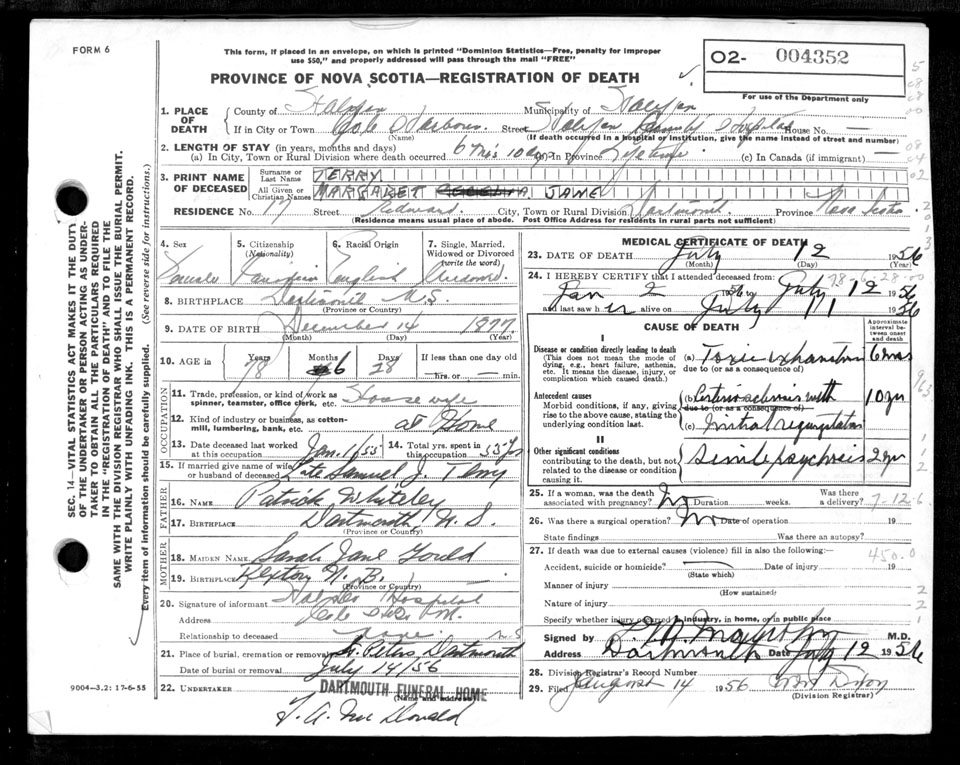 FORM 6
This form, if placed in an envelope, on which is printed "Dominion Statistics—Free, penalty for improper
use $50," and properly addressed will pass through the mail "FREE"
PROVINCE OF NOVA SCOTIA—REGISTRATION OF DEATH
O2- 004352
For use of the Department only
1. PLACE OF DEATH { County of Halifax Municipality of Halifax
If in City or Town Cole Harbour Street Halifax County Hospital House No. —
(Name) (If death occurred in a hospital or institution, give the name instead of street and number)
2. LENGTH OF STAY (in years, months and days)
(a) In City, Town or Rural Division where death occurred 6 Mos 10 days In Province Lifetime (c) In Canada (if immigrant) —
3. PRINT NAME OF DECEASED { Surname or Last Name TERRY
All Given or Christian Names MARGARET CECELIA JANE
RESIDENCE No. 17 Street City, Town or Rural Division Dartmouth Province Nova Scotia
(Residence means usual place of abode. Post Office Address for residents in rural parts not sufficient)
4. Sex 5. Citizenship (Nationality) 6. Racial Origin 7. Single, Married, Widowed or Divorced (write the word)
Female Canadian English Widowed
8. BIRTHPLACE Dartmouth N.S.
(Province or Country)
9. DATE OF BIRTH December 14 1877
(Month) (Day) (Year)
10. AGE in { Years Months Days If less than one day old
78 6 28 — hrs. or — min.
OCCUPATION
11. Trade, profession, or kind of work as spinner, teamster, office clerk, etc. House wife
12. Kind of industry or business, as cotton-mill, lumbering, bank, etc. at Home
13. Date deceased last worked at this occupation Jan. 1/55 14. Total yrs. spent in this occupation 55 yrs
15. If married give name of wife or husband of deceased Late Samuel J. Terry
FATHER
16. NAME Patrick Whiteley
17. BIRTHPLACE Dartmouth, N.S.
(Province or Country)
MOTHER
18. MAIDEN NAME Sarah Jane Gould
19. BIRTHPLACE Rexton N.B. —
(Province or Country)
20. Signature of informant Halifax Hospital
Address Cole
Relationship to deceased none. N.S
21. Place of burial, cremation or removal St. Peters Dartmouth
Date of burial or removal July 14/56
22. UNDERTAKER DARTMOUTH FUNERAL HOME
(Name and address)
9004—3.2: 17-6-55
T. A. Mc Donald
SEC. 14—VITAL STATISTICS ACT MAKES IT THE DUTY
OF THE UNDERTAKER OR PERSON ACTING AS UNDER-
TAKER TO OBTAIN ALL THE PARTICULARS REQUIRED
IN THE "REGISTRATION OF DEATH" AND TO FILE THE
SAME WITH THE DIVISION REGISTRAR WHO SHALL ISSUE THE BURIAL PERMIT.
WRITE PLAINLY WITH UNFADING INK. THIS IS A PERMANENT RECORD.
Every item of information should be carefully supplied. (See reverse side for instructions.)
MEDICAL CERTIFICATE OF DEATH
23. DATE OF DEATH July 12 1956
(Month) (Day) (Year)
24. I HEREBY CERTIFY that I attended deceased from: 78-6-28-00
Jan 2 1956 to July 12 1956
and last saw her alive on July 11 1956
CAUSE OF DEATH
Approximate interval between onset and death
I
Disease or condition directly leading to death
(This does not mean the mode of dying, e.g., heart failure, asthenia, etc. It means the disease, injury, or complication which caused death.)
(a) Toxic exhaustion 6 mos
due to (or as a consequence of)
Antecedent causes
Morbid conditions, if any, giving rise to the above cause, stating the underlying condition last.
(b) Arteriosclerosis with 10 yrs
due to (or as a consequence of)
(c) mitral regurgitation
II
Other significant conditions
contributing to the death, but not related to the disease or condition causing it.
Senile psychosis 2 yrs
25. If a woman, was the death associated with pregnancy? No Duration weeks. Was there a delivery?
7-12-6
26. Was there a surgical operation? No Date of operation 19
State findings Was there an autopsy?
27. If death was due to external causes (violence) fill in also the following:—
450.0
Accident, suicide or homicide? Date of injury 19
(State which)
Manner of injury
(How sustained)
Nature of injury
Specify whether injury occurred in industry, in home, or in public place
Signed by M.D.
Address Dartmouth Date July 12 1956
28. Division Registrar's Record Number
29. Filed August 14 1956
(Division Registrar)